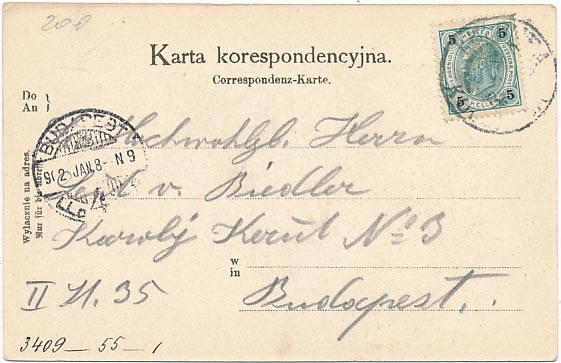 200
Karta korespondencyjna.
Correspondenz-Karte.
Do
An
Hochwohlgb. Herrn
v. Biedler
Karoly Kerut No 3
w
in
II H. 35
Budapest.
Wyłącznie na adres.
Nur für die Adresse.
3409 — 55 — 1
BUDAPEST
902 JAN. 8 - N 9
5 5
5 5
HELLER